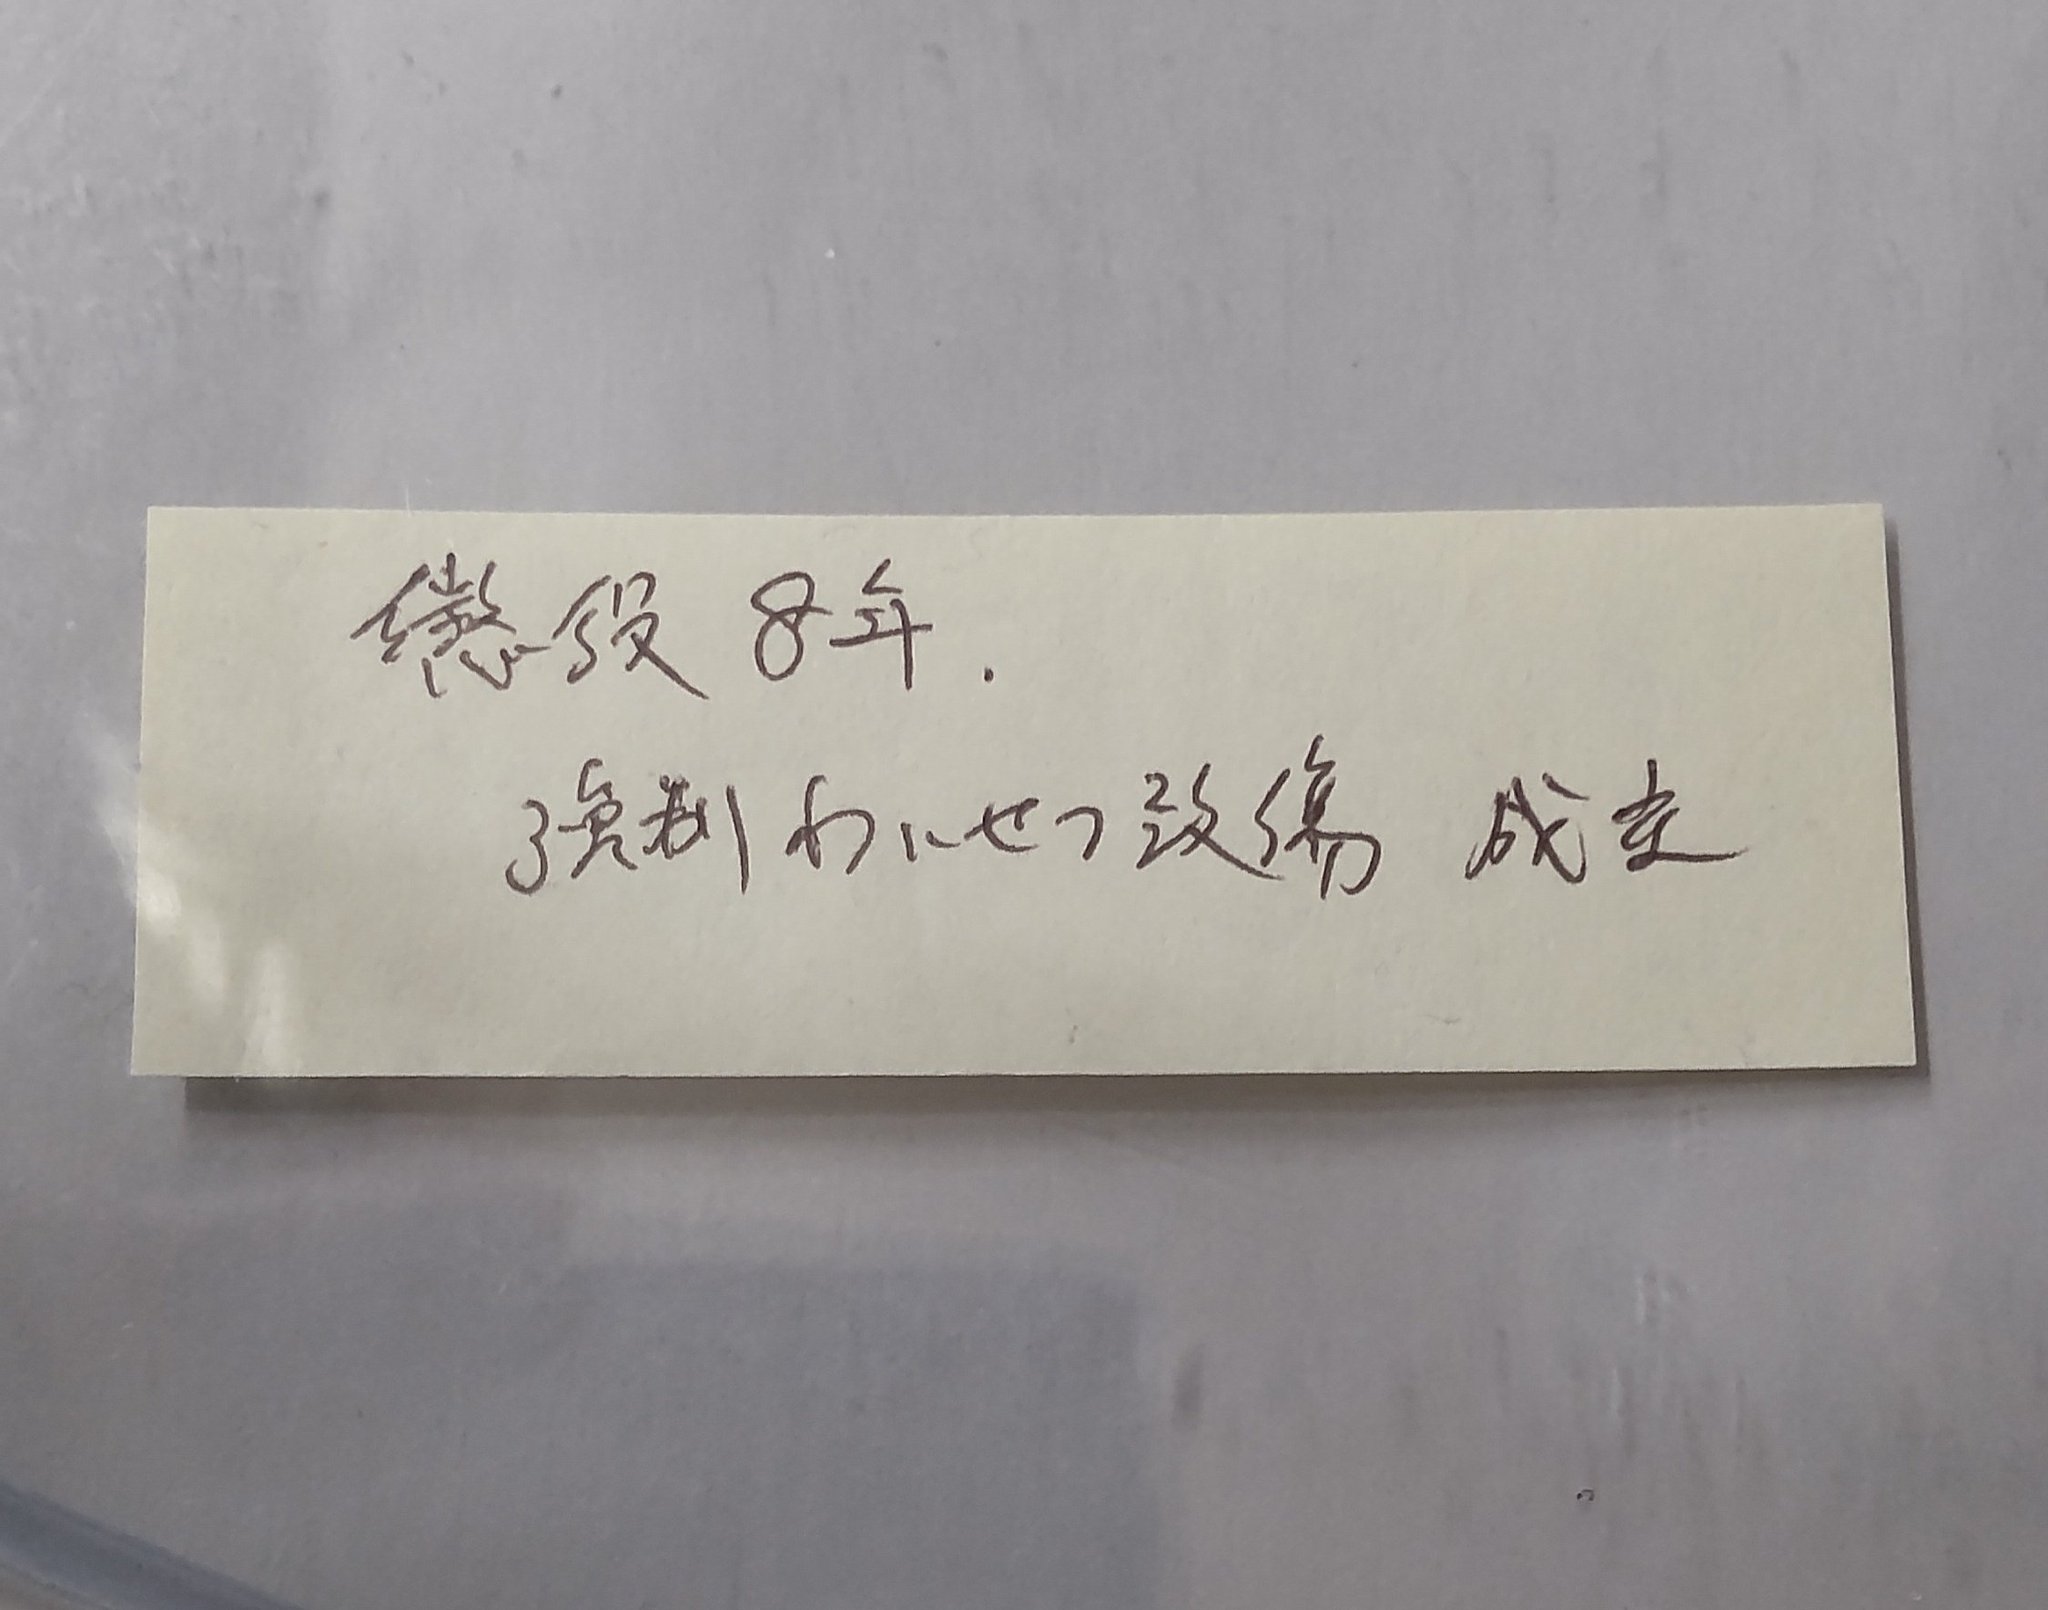 懲役 8年.
強制わいせつ致傷 成立